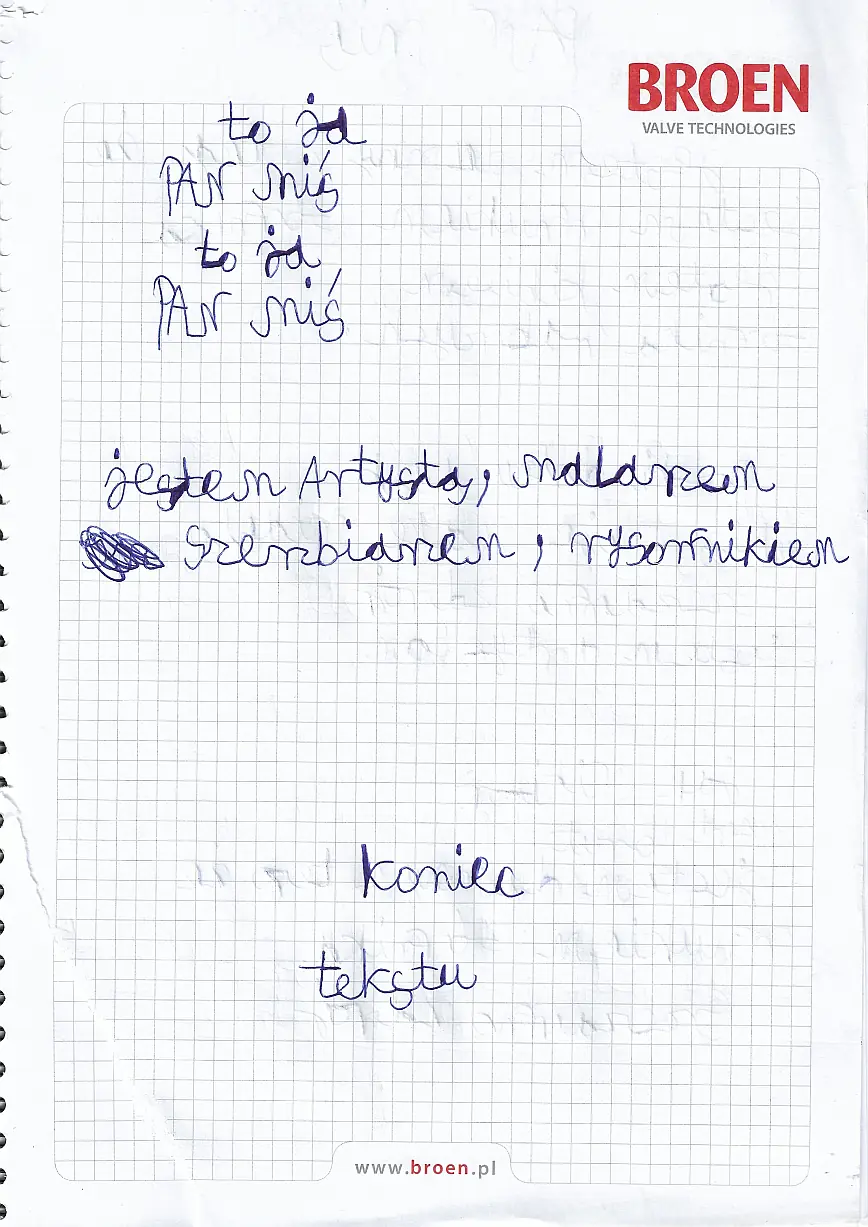 BROEN
VALVE TECHNOLOGIES
to ja
PAN miś
to ja
PAN miś
jestem Artystą, malarzem
Szerzbiarzem, rysownikiem
koniec
tekstu
www.broen.pl